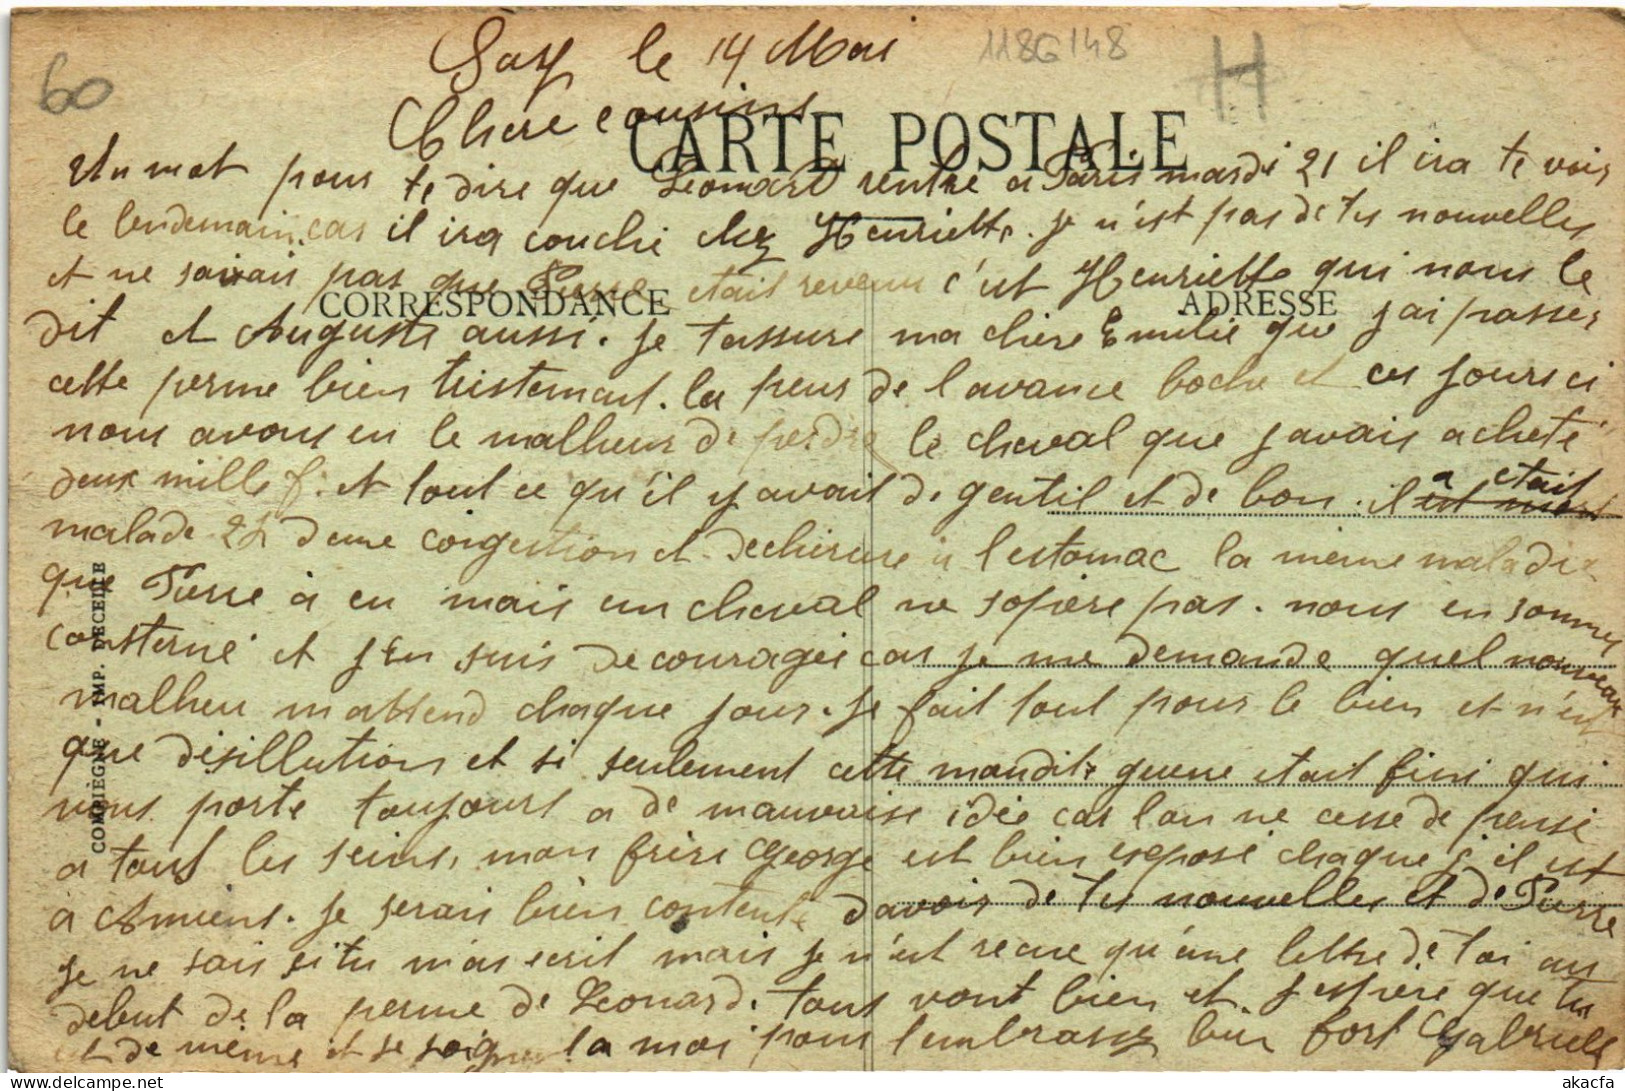 60
Gay le 14 Mai
118G148
H
Chere cousins
CARTE POSTALE
Un mot pour te dire que Leonard rentre a Paris mardi 21 il ira te voir
le lendemain car il ira couché chez Henriette. Je n'est pas de tes nouvelles
et ne savais pas que Pierre etait revenu c'est Henriette qui nous le
CORRESPONDANCE
ADRESSE
dit et Auguste aussi. Je t'assure ma chère Emilie que j'ai passer
cette perme bien tristement. la peur de l'avance boche et ces jours ci
nous avons eu le malheur de perdre le cheval que j'avais acheté
deux mille f. et tout ce qu'il y avait de gentil et de bon. il a etait
malade 24 d'une congestion et dechirure à l'estomac la même maladie
que Pierre à eu mais un cheval ne s'opère pas. nous en sommes
consterné et j'en suis decouragée car je me demande quel nouveau
malheur m'attend chaque jour. Je fait tout pour le bien et n'est
que desillution et si seulement cette maudite guerre etait fini qui
vous porte toujours a de mauvaise idée car l'on ne cesse de pensé
a tous les seins, mon frère George est bien exposé chaque j. il est
à Amiens. Je serais bien contente d'avoir de tes nouvelles et de Pierre
je ne sais si tu m'as ecrit mais je n'est recue qu'une lettre de toi au
debut de la perme de Leonard. tous vont bien et j'espère que tu
et de meme et se soigner la moi pour t'embrasser bien fort Gabrielle
COMPIEGNE - IMP. DECELLE
akacfa.com
akacfa